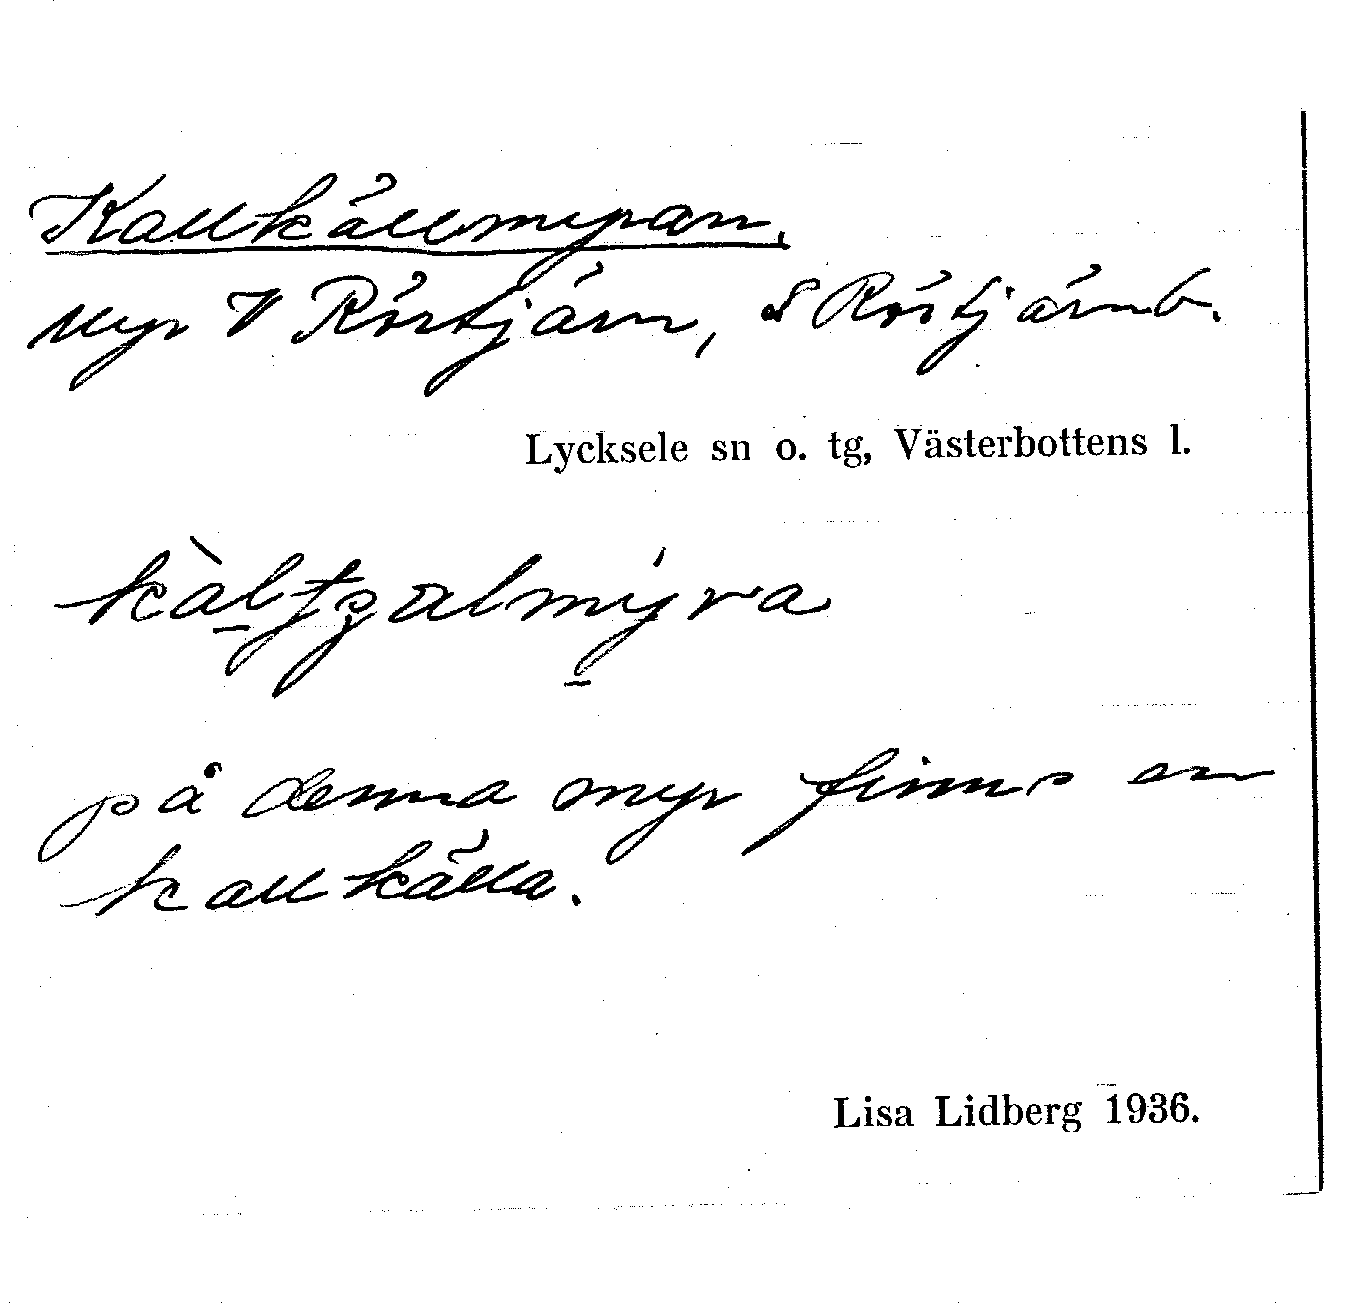 Kallkällmyran.
Myr V Rörtjärn, S Rörtjärnb.
Lycksele sn o. tg, Västerbottens l.
på denna myr finns en
kallkälla.
Lisa Lidberg 1936.